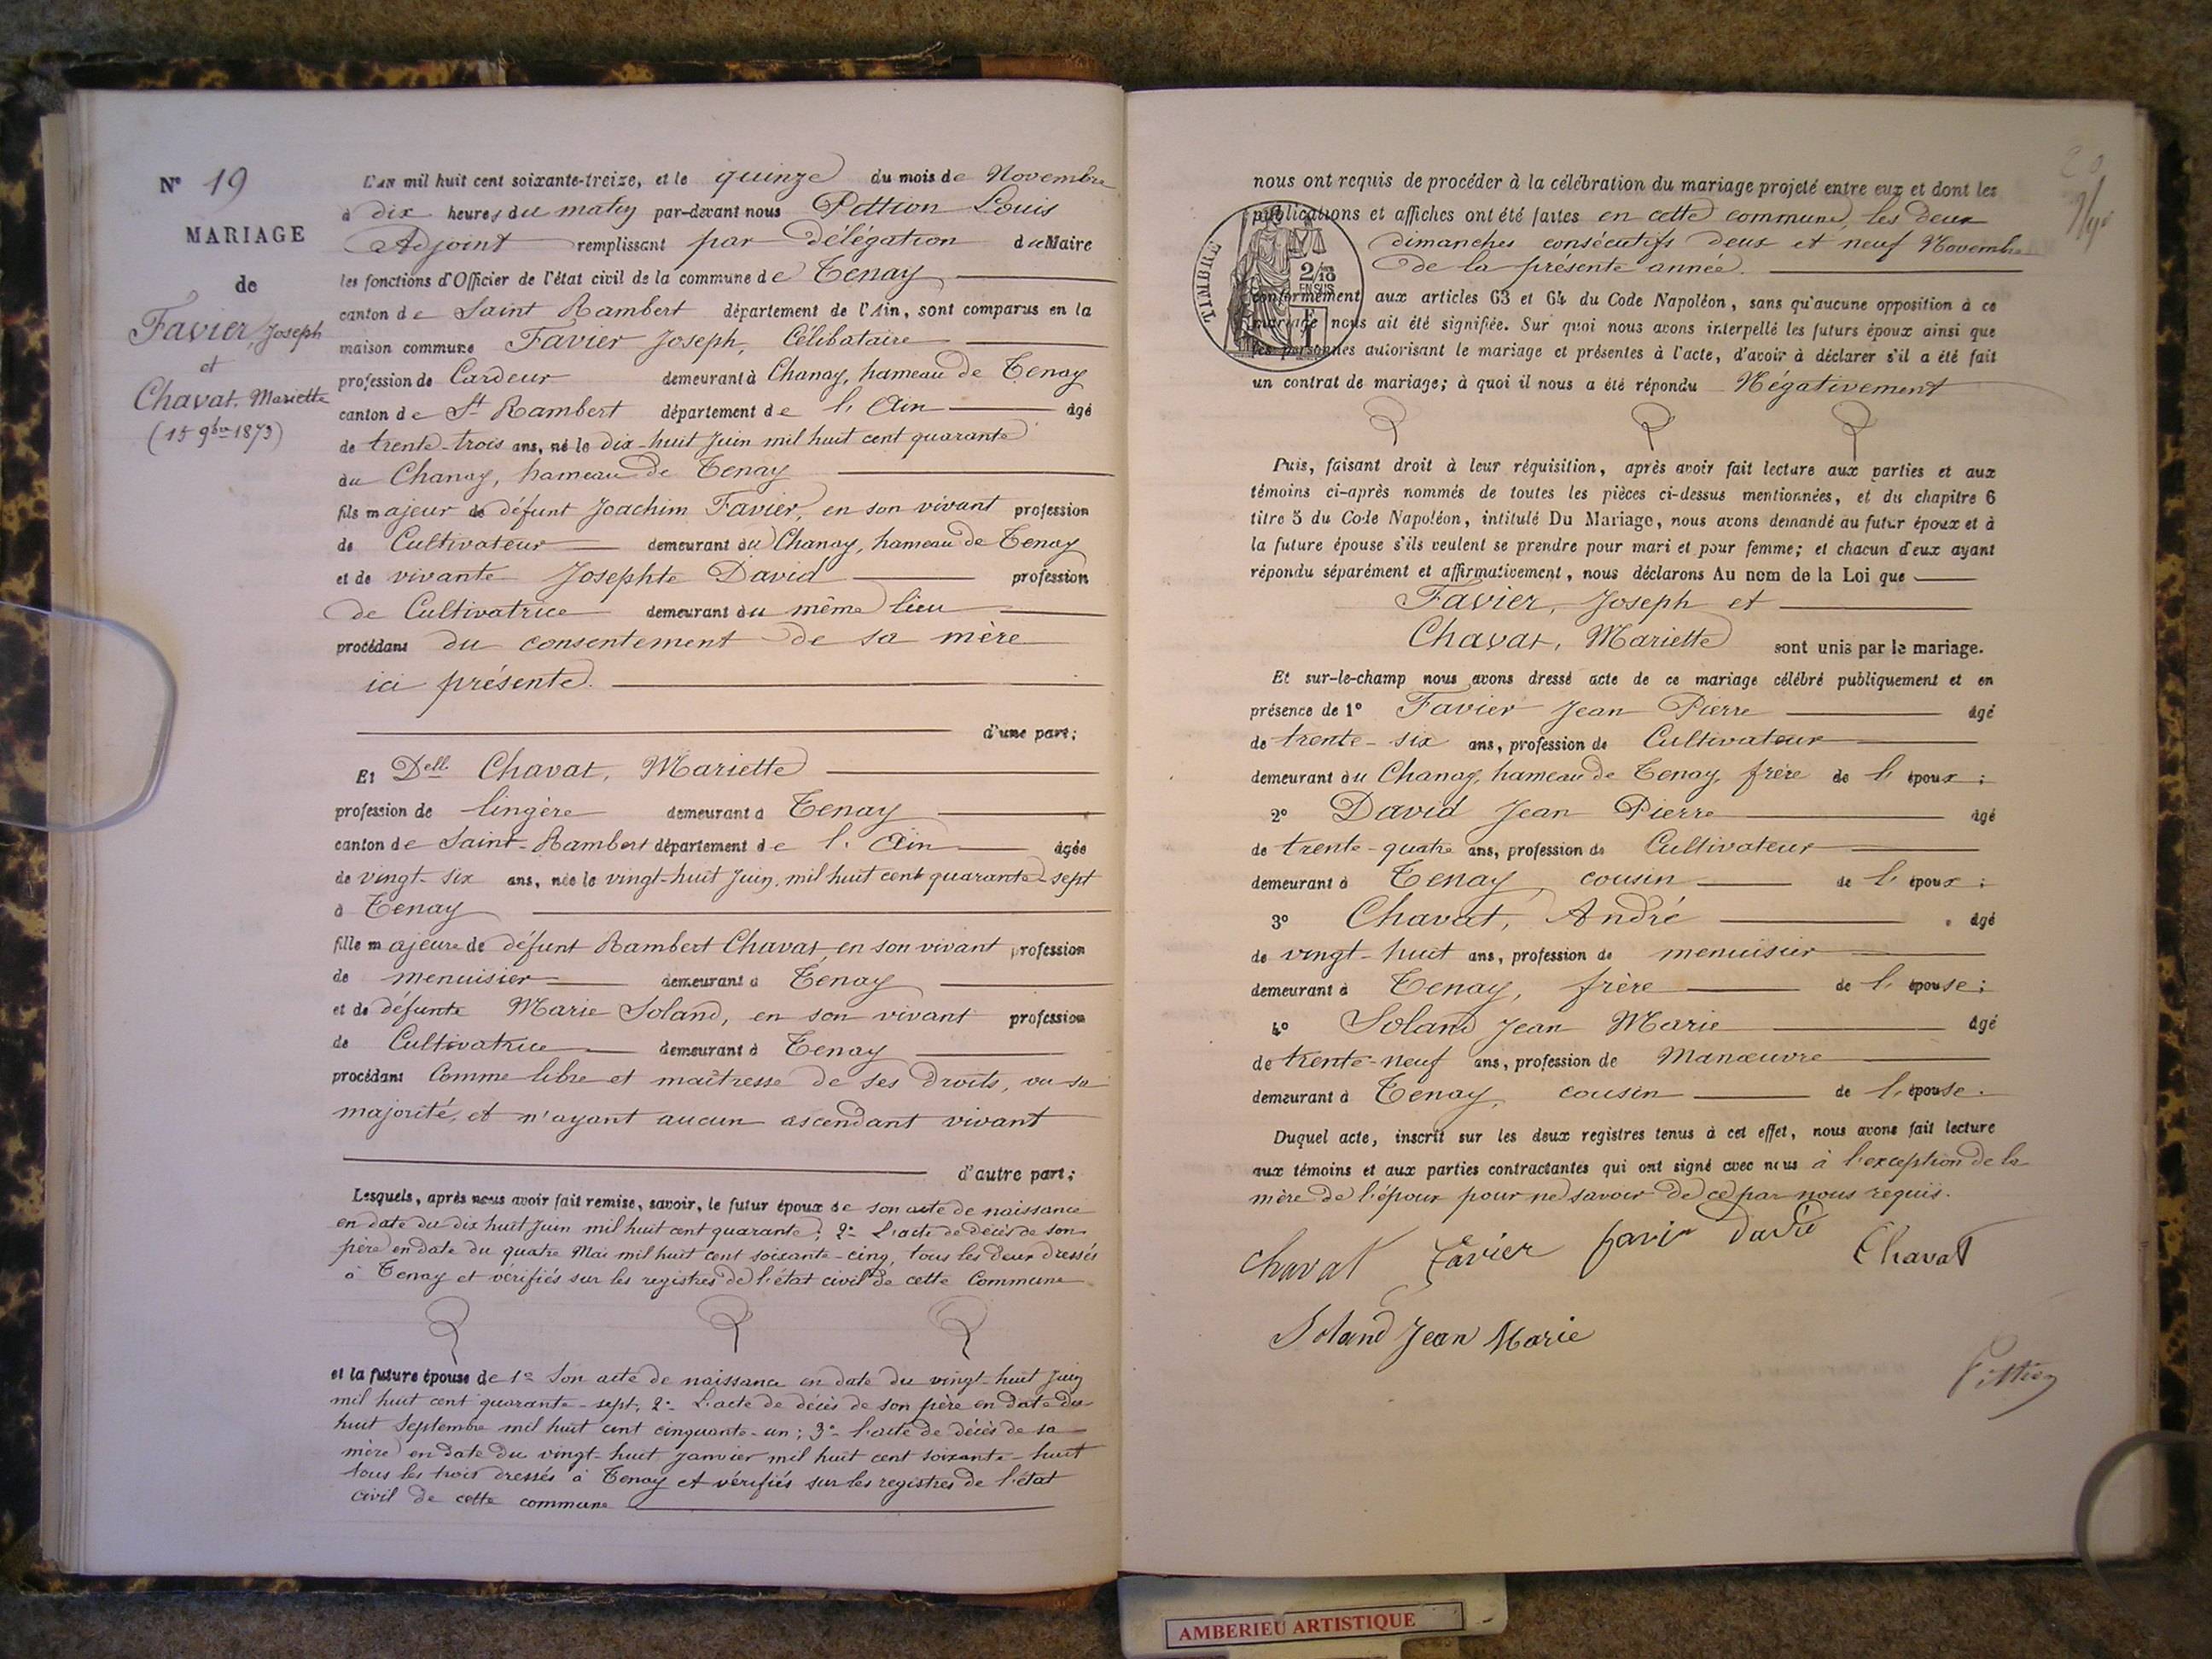 N° 19
MARIAGE
de
Favier, Joseph
et
Chavat, Mariette
(15 9bre 1873)
L'an mil huit cent soixante-treize, et le quinze du mois de Novembre
à dix heures du matin par-devant nous Pittion Louis
Adjoint remplissant par délégation du Maire
les fonctions d'Officier de l'état civil de la commune de Tenay
canton de Saint Rambert département de l'Ain, sont comparus en la
maison commune Favier Joseph, Célibataire
profession de Cardeur demeurant à Chanay, hameau de Tenay
canton de St Rambert département de l'Ain âgé
de trente-trois ans, né le dix-huit Juin mil huit cent quarante
au Chanay, hameau de Tenay
fils majeur de défunt Joachim Favier, en son vivant profession
de Cultivateur demeurant au Chanay, hameau de Tenay
et de vivante Josephte David profession
de Cultivatrice demeurant au même lieu
procédant du consentement de sa mère
ici présente.
d'une part;
Et Delle Chavat, Mariette
profession de lingère demeurant à Tenay
canton de Saint-Rambert département de l'Ain âgée
de vingt-six ans, née le vingt-huit Juin, mil huit cent quarante-sept
à Tenay
fille majeure de défunt Rambert Chavat, en son vivant profession
de menuisier demeurant à Tenay
et de défunte Marie Soland, en son vivant profession
de Cultivatrice demeurant à Tenay
procédant Comme libre et maîtresse de ses droits, vu sa
majorité, et n'ayant aucun ascendant vivant
d'autre part;
Lesquels, après nous avoir fait remise, savoir, le futur époux de son acte de naissance
en date du dix huit Juin mil huit cent quarante; 2° L'acte de décès de son
père en date du quatre Mai mil huit cent soixante-cinq, tous les deux dressés
à Tenay et vérifiés sur les registres de l'état civil de cette Commune
et la future épouse de 1° Son acte de naissance en date du vingt-huit Juin
mil huit cent quarante-sept; 2° L'acte de décès de son père en date du
huit Septembre mil huit cent cinquante-un; 3° l'acte de décès de sa
mère en date du vingt-huit Janvier mil huit cent soixante-huit
tous les trois dressés à Tenay et vérifiés sur les registres de l'état
civil de cette commune
nous ont requis de procéder à la célébration du mariage projeté entre eux et dont les
publications et affiches ont été faites en cette commune, les deux
dimanches consécutifs deux et neuf Novembre
de la présente année.
TIMBRE
2/10
EN SUS
conformément aux articles 63 et 64 du Code Napoléon, sans qu'aucune opposition à ce
mariage nous ait été signifiée. Sur quoi nous avons interpellé les futurs époux ainsi que
les personnes autorisant le mariage et présentes à l'acte, d'avoir à déclarer s'il a été fait
un contrat de mariage; à quoi il nous a été répondu Négativement
Puis, faisant droit à leur réquisition, après avoir fait lecture aux parties et aux
témoins ci-après nommés de toutes les pièces ci-dessus mentionnées, et du chapitre 6
titre 5 du Code Napoléon, intitulé Du Mariage, nous avons demandé au futur époux et à
la future épouse s'ils veulent se prendre pour mari et pour femme; et chacun d'eux ayant
répondu séparément et affirmativement, nous déclarons Au nom de la Loi que
Favier, Joseph et
Chavat, Mariette sont unis par le mariage.
Et sur-le-champ nous avons dressé acte de ce mariage célébré publiquement et en
présence de 1° Favier Jean Pierre âgé
de trente-six ans, profession de Cultivateur
demeurant au Chanay, hameau de Tenay, frère de l'époux;
2° David Jean Pierre âgé
de trente-quatre ans, profession de Cultivateur
demeurant à Tenay, cousin de l'époux;
3° Chavat, André âgé
de vingt-huit ans, profession de menuisier
demeurant à Tenay, frère de l'épouse;
4° Soland Jean Marie âgé
de trente-neuf ans, profession de Manœuvre
demeurant à Tenay, cousin de l'épouse.
Duquel acte, inscrit sur les deux registres tenus à cet effet, nous avons fait lecture
aux témoins et aux parties contractantes qui ont signé avec nous à l'exception de la
mère de l'époux pour ne savoir de ce par nous requis.
Chavat Favier favier David Chavat
Soland Jean Marie
Pittion
AMBERIEU ARTISTIQUE